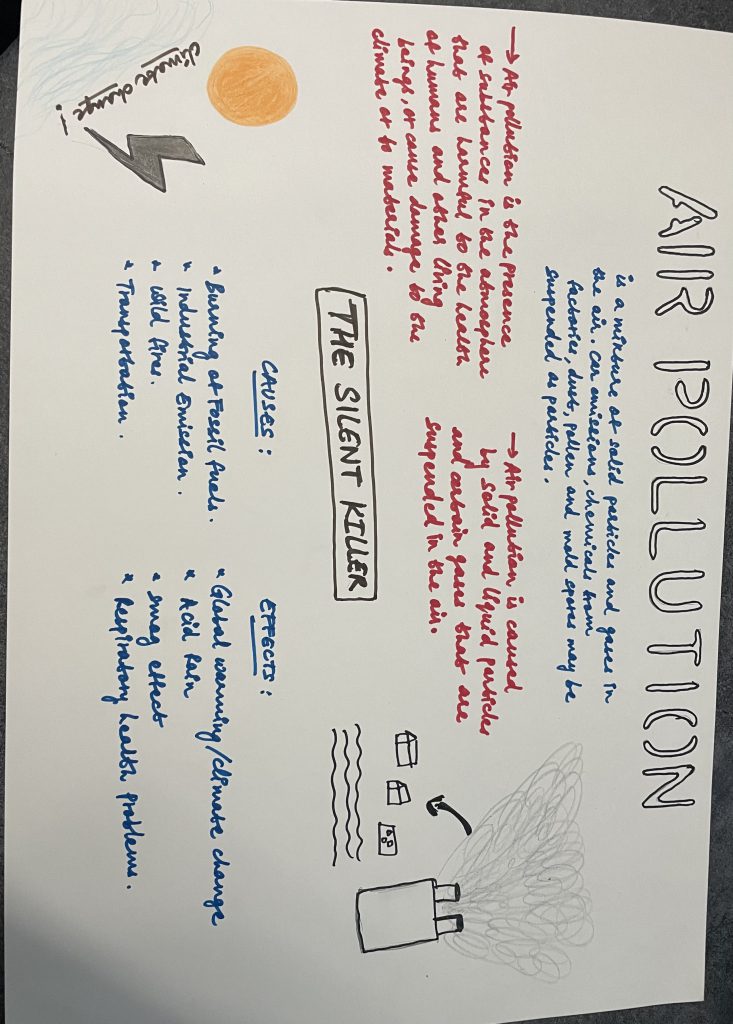 AIR POLLUTION
is a mixture of solid particles and gases in
the air. Car emissions, chemicals from
factories, dust, pollen and mold spores may be
suspended as particles.
→ Air pollution is the presence
of substances in the atmosphere
that are harmful to the health
of humans and other living
beings, or cause damage to the
climate or to materials.
→ Air pollution is caused
by solid and liquid particles
and certain gases that are
suspended in the air.
THE SILENT KILLER
CAUSES :
* Burning of Fossil fuels.
* Industrial Emission.
* Wild fire.
* Transportation.
EFFECTS :
* Global warming/climate change
* Acid Rain
* smog effect
* Respiratory health Problems.
climate change!